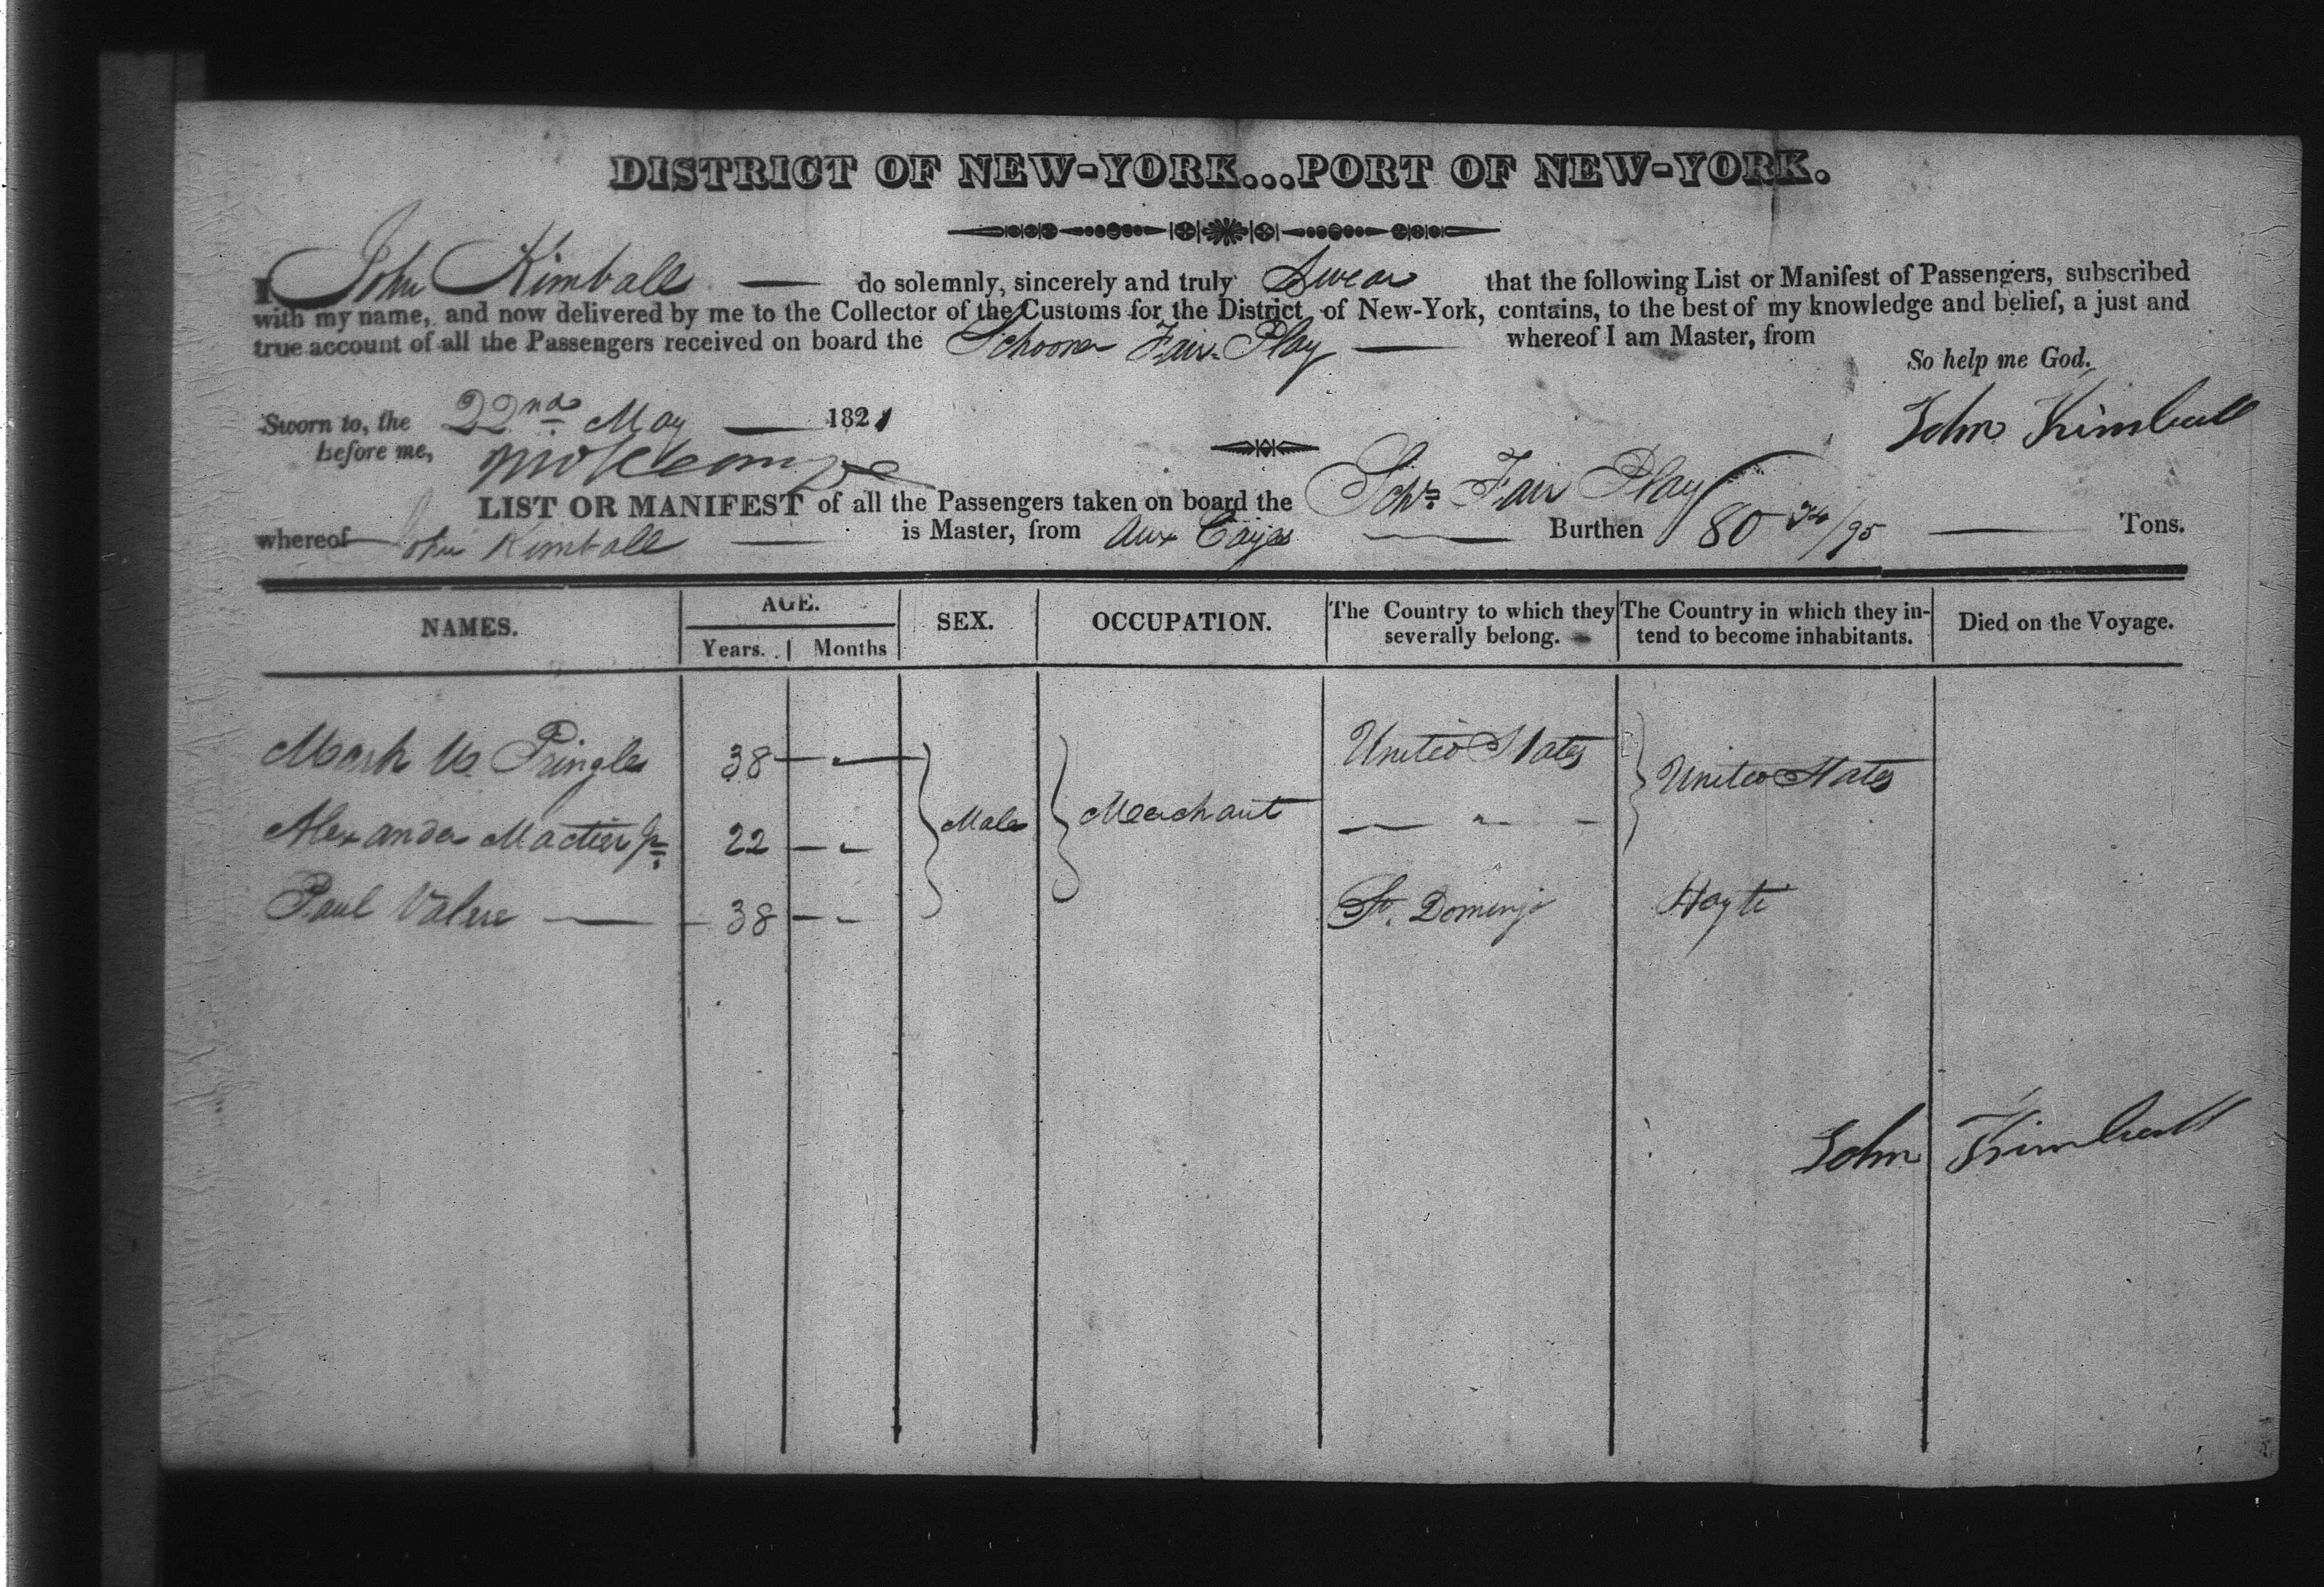 DISTRICT OF NEW-YORK...PORT OF NEW-YORK.
I John Kimball — do solemnly, sincerely and truly Swear that the following List or Manifest of Passengers, subscribed
with my name, and now delivered by me to the Collector of the Customs for the District of New-York, contains, to the best of my knowledge and belief, a just and
true account of all the Passengers received on board the Schooner Fair Play — whereof I am Master, from
So help me God.
Sworn to, the 22nd May — 1821
John Kimball
before me,
LIST OR MANIFEST of all the Passengers taken on board the Schr Fair Play
whereof John Kimball — is Master, from Aux Cayes — Burthen 80 34/95 — Tons.
NAMES. AGE. SEX. OCCUPATION. The Country to which they severally belong. The Country in which they intend to become inhabitants. Died on the Voyage.
Years. Months
Mark U. Pringle 38 — " — United States
Male Merchant United States
Alexander Mactier Jr. 22 — " — " —
Paul Valere — 38 — " St. Domingo Hayti
John Kimball